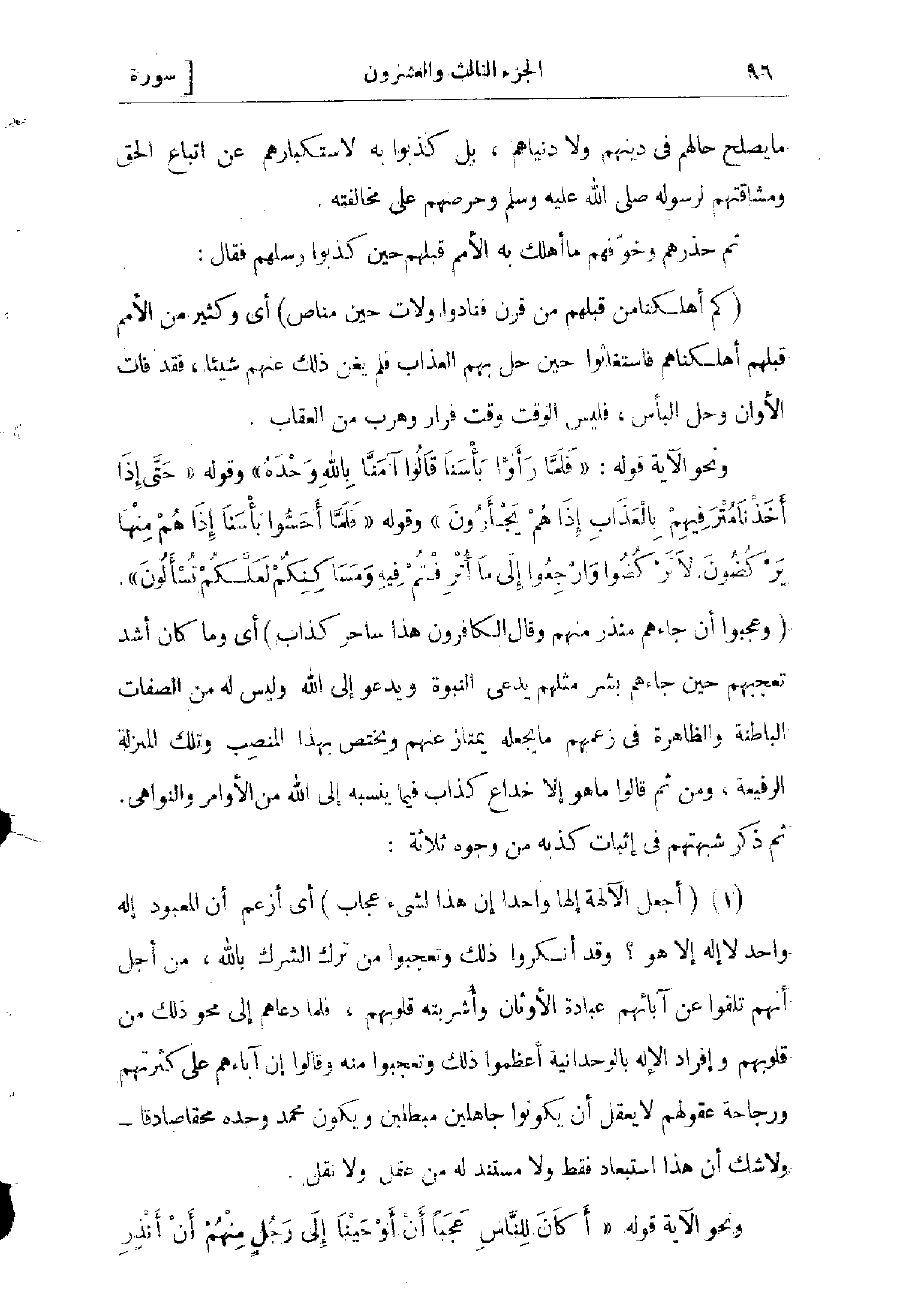 ٩٦ الجزء الثالث والعشرون [ سورة
مايصلح حالهم فى دينهم ولا دنياهم ، بل كذبوا به لاستكبارهم عن اتباع الحق
ومشاقتهم لرسوله صلى الله عليه وسلم وحرصهم على مخالفته .
ثم حذرهم وخوّفهم ماأهلك به الأمم قبلهم حين كذبوا رسلهم فقال :
( كم أهلكنا من قبلهم من قرن فنادوا ولات حين مناص ) أى وكثير من الأمم
قبلهم أهلكناهم فاستغاثوا حين حل بهم العذاب فلم يغن ذلك عنهم شيئا ، فقد فات
الأوان وحل البأس ، فليس الوقت وقت فرار وهرب من العقاب .
ونحو الآية قوله : « فَلَمَّا رَأَوْا بَأْسَنَا قَالُوا آمَنَّا بِاللهِ وَحْدَهُ » وقوله « حَتَّى إِذَا
أَخَذْنَا مُتْرَفِيهِمْ بِالْعَذَابِ إِذَا هُمْ يَجْأَرُونَ » وقوله « فَلَمَّا أَحَسُّوا بَأْسَنَا إِذَا هُمْ مِنْهَا
يَرْكُضُونَ. لاَتَرْكُضُوا وَارْجِعُوا إِلَى مَا أُتْرِفْتُمْ فِيهِ وَمَسَاكِنِكُمْ لَعَلَّكُمْ تُسْأَلُونَ » .
( وعجبوا أن جاءهم منذر منهم وقال الكافرون هذا ساحر كذاب ) أى وما كان أشد
تعجبهم حين جاءهم بشر مثلهم يدعى النبوة ويدعو إلى الله وليس له من الصفات
الباطنة والظاهرة فى زعمهم مايجعله يمتاز عنهم ويختص بهذا المنصب وتلك المنزلة
الرفيعة ، ومن ثم قالوا ماهو إلا خداع كذاب فيما ينسبه إلى الله من الأوامر والنواهى .
ثم ذكر شبهتهم فى إثبات كذبه من وجوه ثلاثة :
(١) ( أجعل الآلهة إلها واحدا إن هذا لشىء عجاب ) أى أزعم أن المعبود إله
واحد لا إله إلا هو ؟ وقد أنكروا ذلك وتعجبوا من ترك الشرك بالله ، من أجل
أنهم تلقوا عن آبائهم عبادة الأوثان وأُشربته قلوبهم ، فلما دعاهم إلى محو ذلك من
قلوبهم وإفراد الإله بالوحدانية أعظموا ذلك وتعجبوا منه وقالوا إن آباءهم على كثرتهم
ورجاحة عقولهم لايعقل أن يكونوا جاهلين مبطلين ويكون محمد وحده محقا صادقا –
ولاشك أن هذا استبعاد فقط ولا مستند له من عقل ولا نقل .
ونحو الآية قوله « أَكَانَ لِلنَّاسِ عَجَبًا أَنْ أَوْحَيْنَا إِلَى رَجُلٍ مِنْهُمْ أَنْ أَنْذِرِ